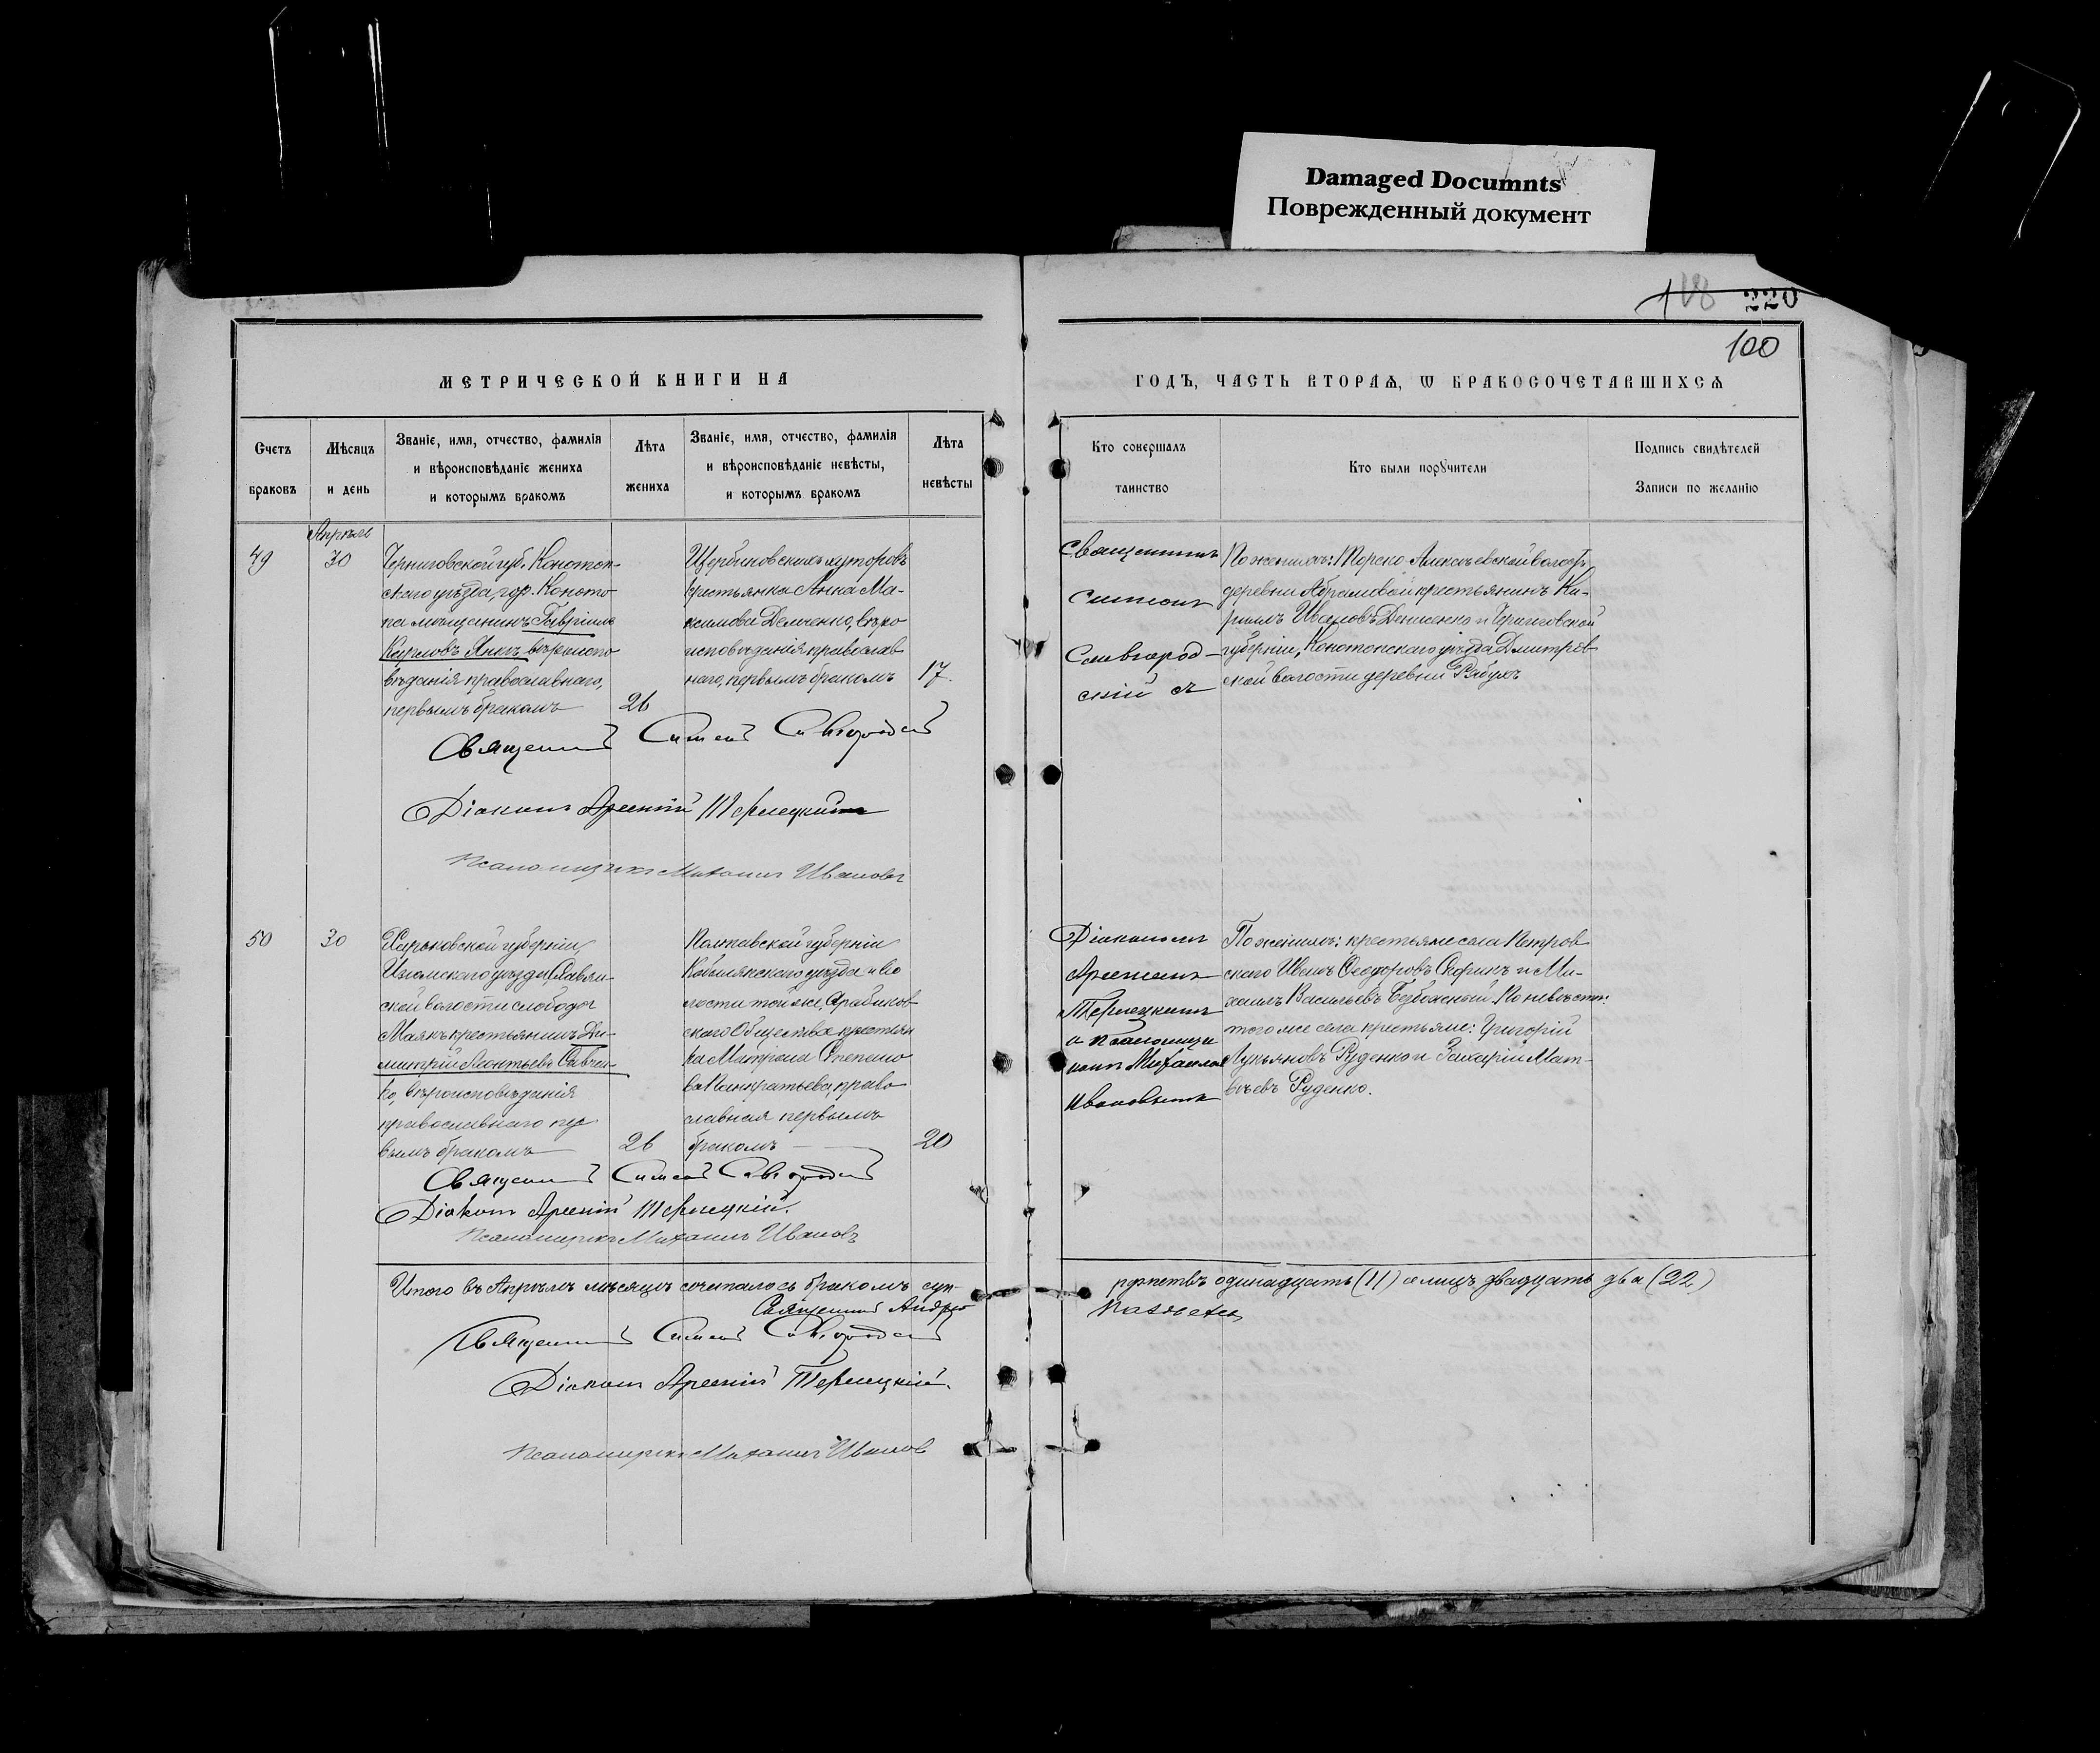 Damaged Documnts
Поврежденный документ
118 220
100
МЕТРИЧЕСКОЙ КНИГИ НА
ГОДЪ, ЧАСТЬ ВТОРАѦ, Ѡ БРАКОСОЧЕТАВШИХСѦ
Счетъ
браковъ
Мѣсяцъ
и день
Званіе, имя, отчество, фамилія
и вѣроисповѣданіе жениха
и которымъ бракомъ
Лѣта
жениха
Званіе, имя, отчество, фамилія
и вѣроисповѣданіе невѣсты,
и которымъ бракомъ
Лѣта
невѣсты
Кто совершалъ
таинство
Кто были порꙋчители
Подпись свидѣтелей
Записи по желанію
Апрѣль
49
30
Черниговской губ. Конотоп-
скаго уѣзда, гор. Коното
па мѣщанинъ Гавріилъ
Карповъ вѣроиспо
вѣданія православнаго,
первымъ бракомъ
26
Щербиновскихъ хуторовъ
крестьянка Анна Ма-
ксимова Демченко, вѣро
исповѣданія православ
наго, первымъ бракомъ
17.
Священникъ
Симеонъ
Савгород-
скій съ
По женихѣ: Торско Алексѣевской волости
деревни Абрамовой крестьянинъ Ки-
риллъ Ивановъ Денисенко и Черниговской
губерніи, Конотопскаго уѣзда Дмитрев
ской волости деревни
Священникъ Симеонъ Савгородскій
Діаконъ Арсеній Терлецкій
Псаломщикъ Михаилъ Ивановъ
50
30
Харьковской губерніи
Изюмскаго уѣзда, Славян-
ской волости слободы
Маякъ крестьянинъ Ди-
митрій Леонтьевъ Савчен-
ко, вѣроисповѣданія
православнаго пер
вымъ бракомъ
26
Полтавской губерніи
Кобелякскаго уѣзда и во
лости той же,
скаго Общества крестьян
ка Матрона Степано
ва Панкратьева, право
славная первымъ
бракомъ
20
Діакономъ
Арсеніемъ
Терлецкимъ
и псаломщи
комъ Михаиломъ
Ивановымъ
По женихѣ: крестьяне села Петров
скаго Иванъ Ѳеодоровъ и Ми-
хаилъ Васильевъ Безбожный. По невѣстѣ:
того же села крестьяне: Григорій
Лукьяновъ Руденко и Захарій Мат-
вѣевъ Руденко.
Священникъ Симеонъ Савгородскій
Діаконъ Арсеній Терлецкій.
Псаломщикъ Михаилъ Ивановъ
Итого въ Апрѣлѣ мѣсяцѣ сочеталось бракомъ суп-
ружествъ одинадцать (11) а лицъ двадцать два (22)
Священникъ Андрей
Священникъ Симеонъ Савгородскій
Діаконъ Арсеній Терлецкій.
Псаломщикъ Михаилъ Ивановъ